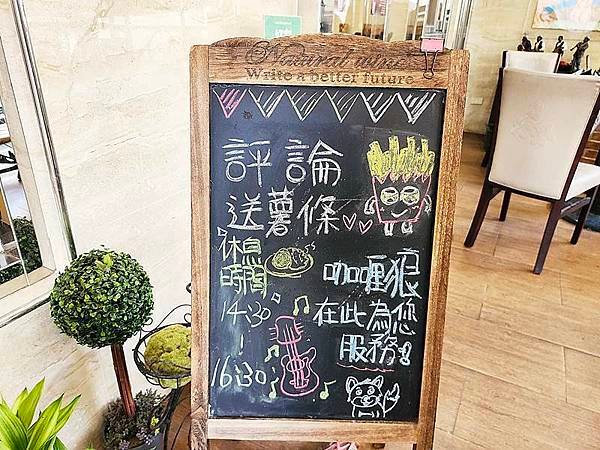 Natural wine
Write a better future
評論
送薯條
休息
時間
14:30
|
16:30
咖哩狼
在此為您
服務